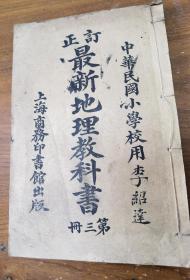 中華民國小學校用李紹達
訂正
最新地理教科書
第三冊
上海商務印書館出版